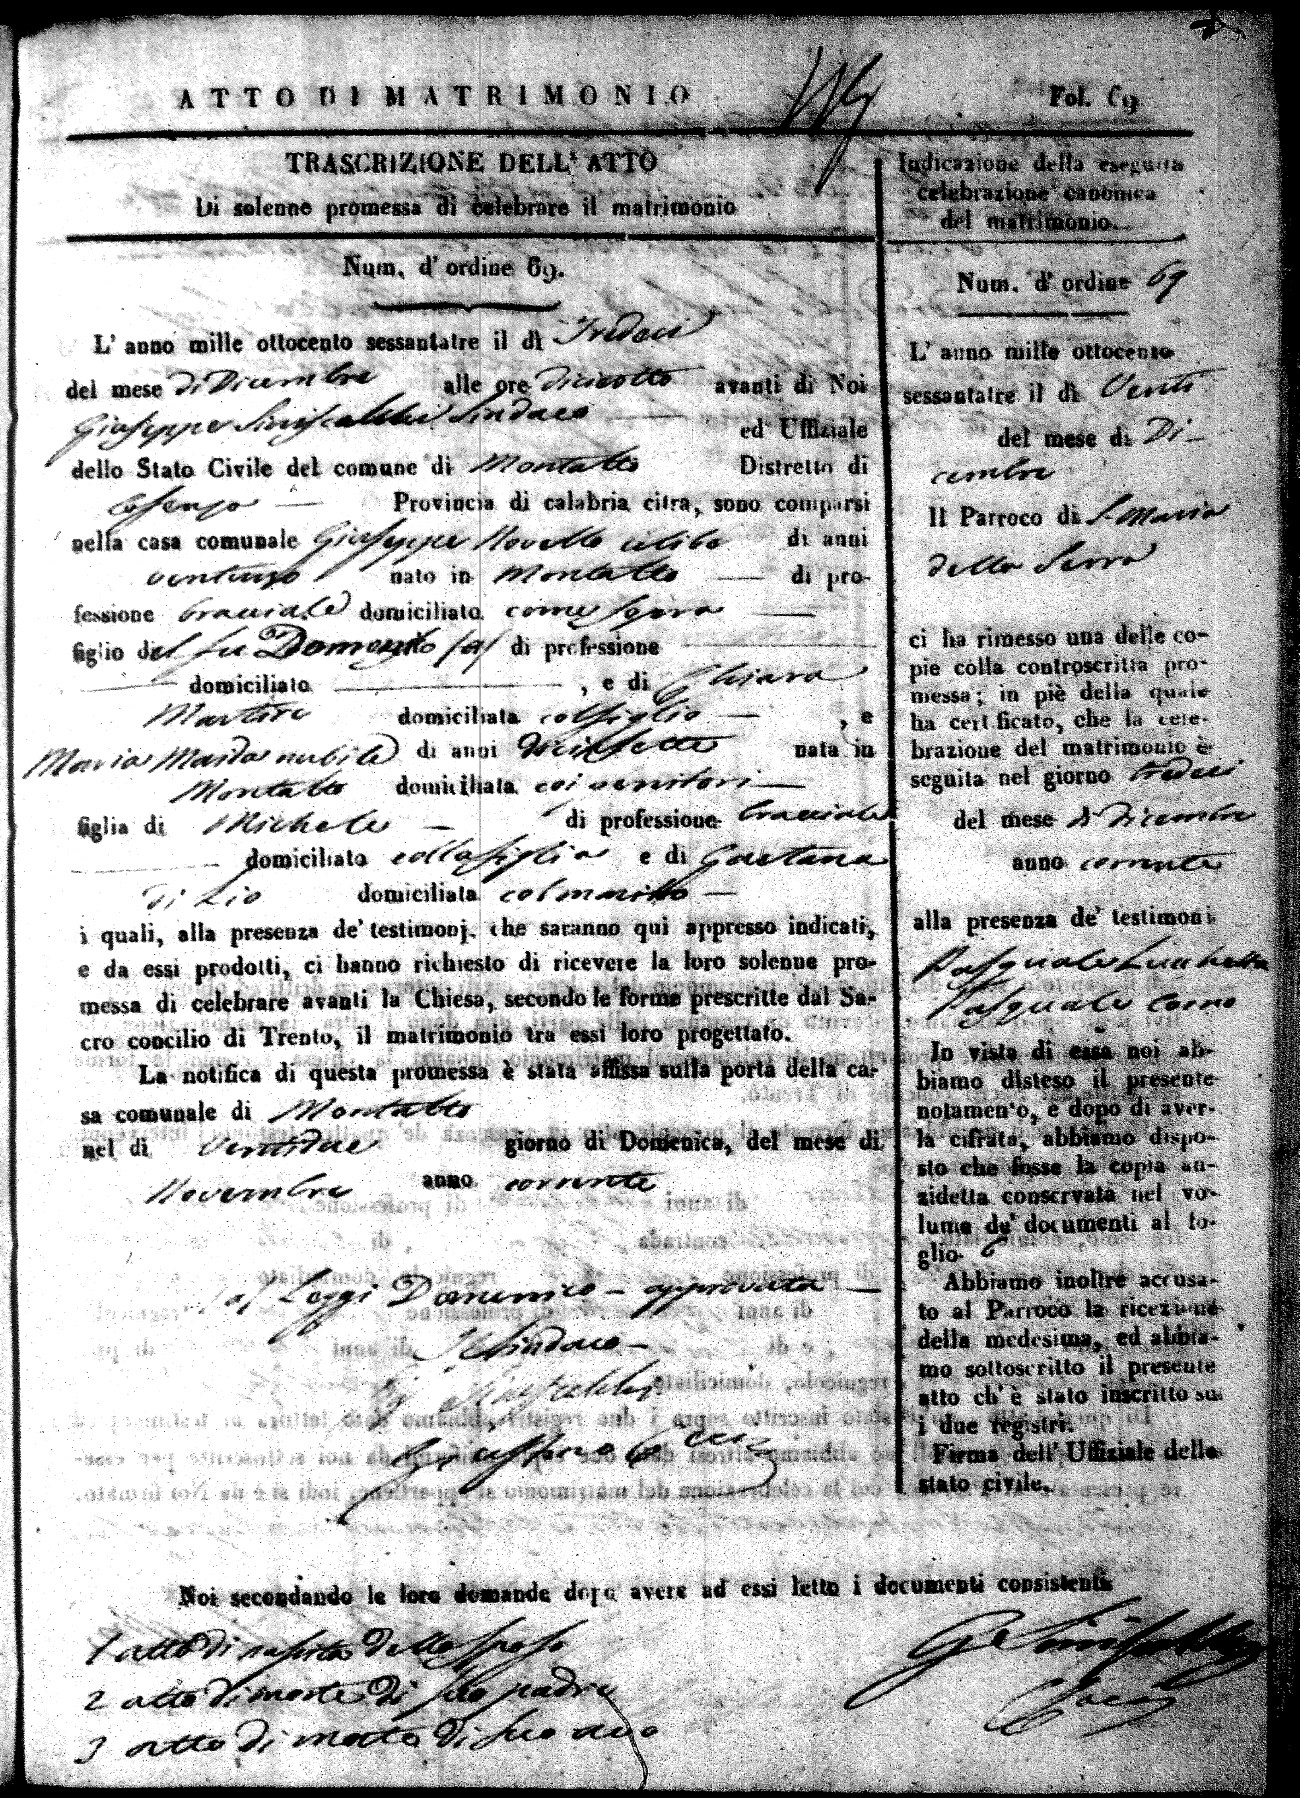 ATTO DI MATRIMONIO
Fol. 69
TRASCRIZIONE DELL' ATTO
Di solenne promessa di celebrare il matrimonio
Num. d' ordine 69.
L' anno mille ottocento sessantatre il dì Tredeci
del mese di Dicembre alle ore diciotto avanti di Noi
Giuseppe Siniscalchi Sindaco
ed Uffiziale
dello Stato Civile del comune di Montalto Distretto di
Cosenza Provincia di calabria citra, sono comparsi
nella casa comunale Giuseppe Novello celibe di anni
ventuno nato in Montalto di pro-
fessione bracciale domiciliato come sopra
figlio del fu Domenico (a) di professione
domiciliato , e di Chiara
Martire domiciliata col figlio , e
Maria nubile di anni diciassette nata in
Montalto domiciliata coi genitori
figlia di Michele di professione bracciale
domiciliato colla figlia e di Gaetana
di Lio domiciliata col marito
i quali, alla presenza de' testimonj. che saranno qui appresso indicati,
e da essi prodotti, ci hanno richiesto di ricevere la loro solenne pro-
messa di celebrare avanti la Chiesa, secondo le forme prescritte dal Sa-
cro concilio di Trento, il matrimonio tra essi loro progettato.
La notifica di questa promessa è stata affissa sulla porta della ca-
sa comunale di Montalto
nel dì Ventidue giorno di Domenica, del mese di
Novembre anno corrente
a) Leggi Domenico - approvata
Il Sindaco
Siniscalchi
Noi secondando le loro domande dopo avere ad essi letto i documenti consistenti
1 atto di nascita dello sposo
2 atto di morte di suo padre
3 atto di morte di suo avo
Indicazione della eseguita
celebrazione canonica
del matrimonio.
Num. d' ordine 69
L' anno mille ottocento
sessantatre il dì Venti
del mese di Di-
cembre
Il Parroco di S. Maria
della Serra
ci ha rimesso una delle co-
pie colla controscritta pro-
messa; in piè della quale
ha certificato, che la cele-
brazione del matrimonio è
seguita nel giorno tredeci
del mese di Dicembre
anno corrente
alla presenza de' testimoni
Pasquale
Pasquale
In vista di essa noi ab-
biamo disteso il presente
notamento, e dopo di aver-
la cifrata, abbiamo dispo-
sto che fosse la copia an-
zidetta conservata nel vo-
lume de' documenti al fo-
glio 6
Abbiamo inoltre accusa-
to al Parroco la ricezione
della medesima, ed abbia-
mo sottoscritto il presente
atto ch' è stato inscritto su
i due registri.
Firma dell' Uffiziale dello
stato civile.
G Siniscalchi